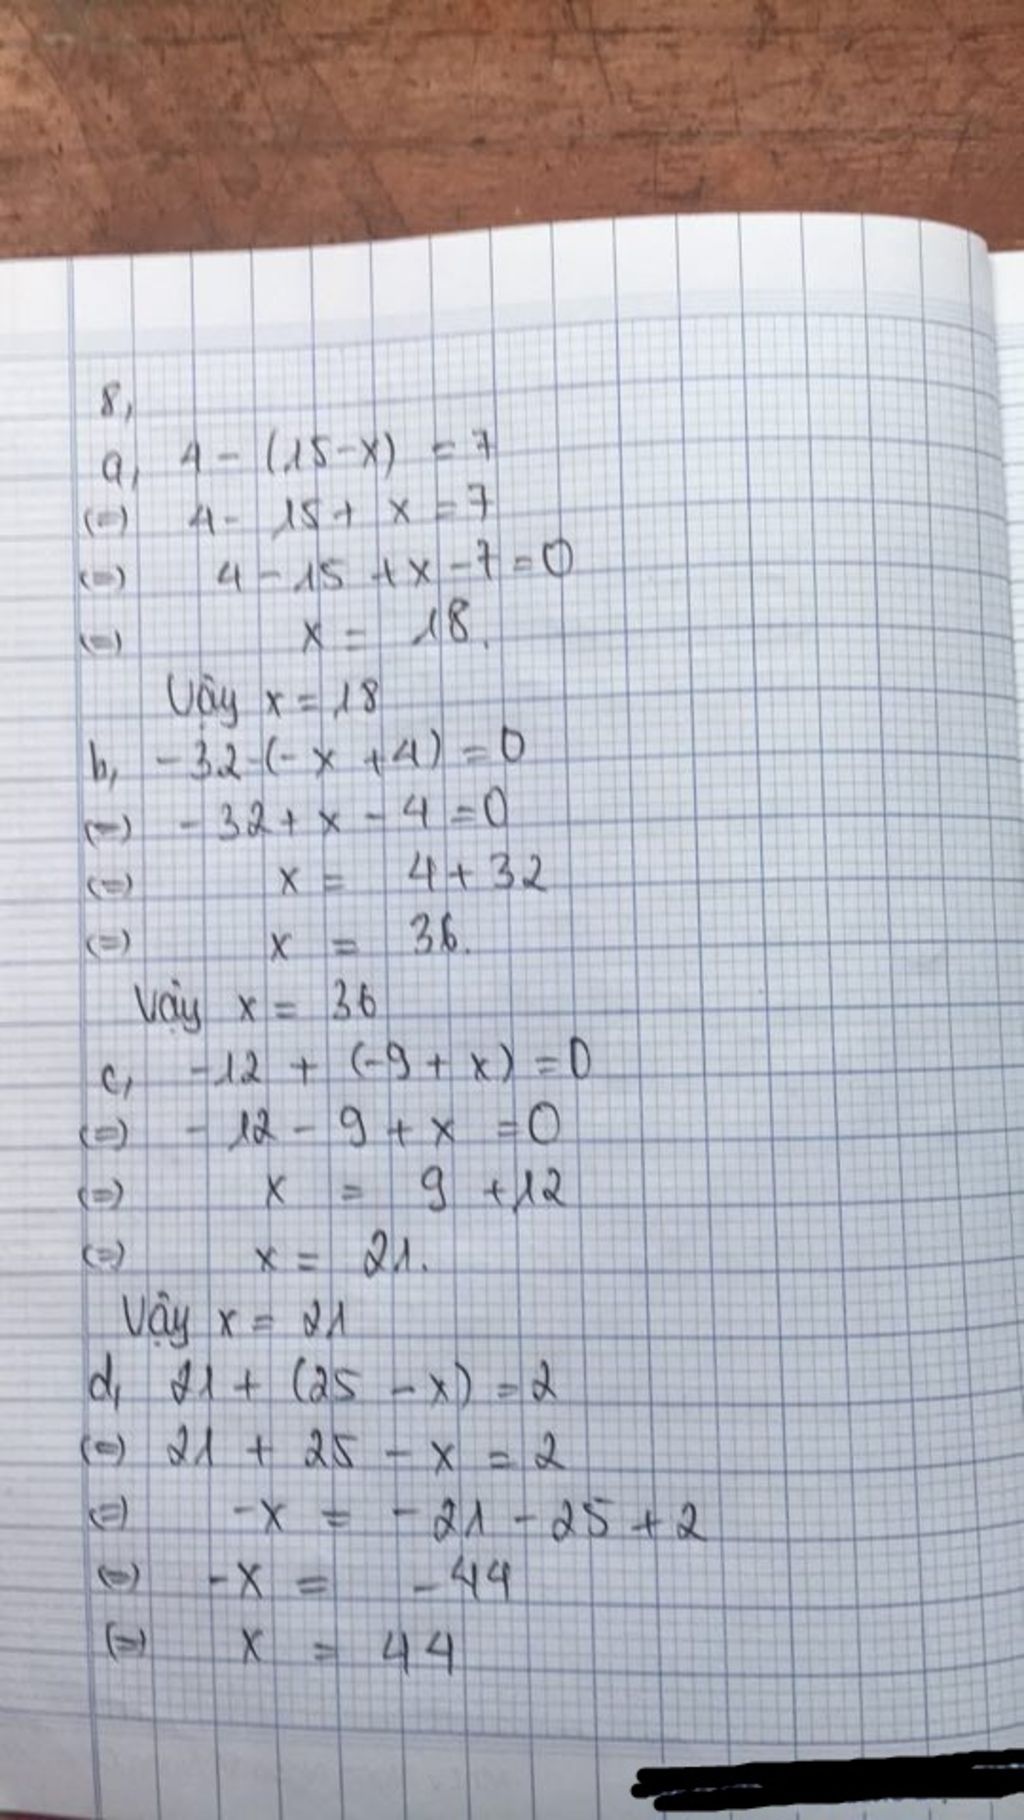 8,
a, 4 - (15 - x) = 7
(=) 4 - 15 + x = 7
(=) 4 - 15 + x - 7 = 0
(=) x = 18.
Vậy x = 18
b, - 32 - (- x + 4) = 0
(=) - 32 + x - 4 = 0
(=) x = 4 + 32
(=) x = 36.
Vậy x = 36
c, - 12 + (- 9 + x) = 0
(=) - 12 - 9 + x = 0
(=) x = 9 + 12
(=) x = 21.
Vậy x = 21
d, 21 + (25 - x) = 2
(=) 21 + 25 - x = 2
(=) - x = - 21 - 25 + 2
(=) - x = - 44
(=) x = 44